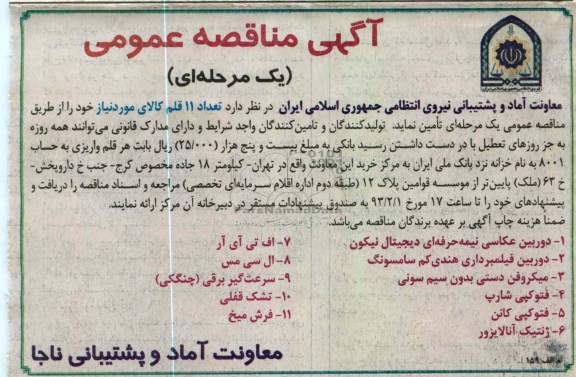 آگهی مناقصه عمومی
(یک مرحله‌ای)
معاونت آماد و پشتیبانی نیروی انتظامی جمهوری اسلامی ایران در نظر دارد تعداد ۱۱ قلم کالای موردنیاز خود را از طریق
مناقصه عمومی یک مرحله‌ای تأمین نماید، تولیدکنندگان و تامین‌کنندگان واجد شرایط و دارای مدارک قانونی می‌توانند همه روزه
به جز روزهای تعطیل با در دست داشتن رسید بانکی به مبلغ بیست و پنج هزار (۲۵/۰۰۰) ریال بابت هر قلم واریزی به حساب
۸۰۰۱ به نام خزانه نزد بانک ملی ایران به مرکز خرید این معاونت واقع در تهران- کیلومتر ۱۸ جاده مخصوص کرج- جنب خ داروپخش-
خ ۶۳ (ملک) پایین‌تر از موسسه قوامین پلاک ۱۲ (طبقه دوم اداره اقلام سرمایه‌ای تخصصی) مراجعه و اسناد مناقصه را دریافت و
پیشنهادهای خود را تا ساعت ۱۷ مورخ ۹۳/۲/۱ به صندوق پیشنهادات مستقر در دبیرخانه آن مرکز ارائه نمایند.
ضمنا هزینه چاپ آگهی بر عهده برندگان مناقصه می‌باشد.
۱- دوربین عکاسی نیمه‌حرفه‌ای دیجیتال نیکون
۲- دوربین فیلمبرداری هندی‌کم سامسونگ
۳- میکروفن دستی بدون سیم سونی
۴- فتوکپی شارپ
۵- فتوکپی کانن
۶- ژنتیک آنالایزور
۷- اف تی آی آر
۸- ال سی مس
۹- سرعت‌گیر برقی (چنگکی)
۱۰- تشک قفلی
۱۱- فرش میخ
معاونت آماد و پشتیبانی ناجا
م الف ۱۵۹